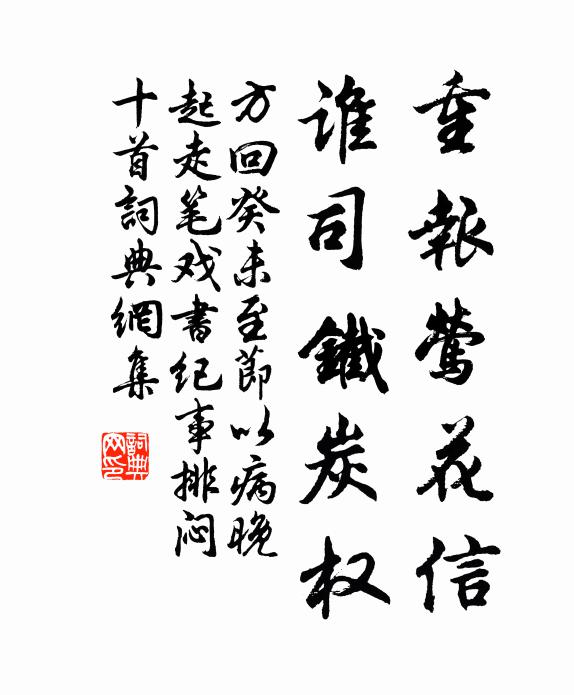 重報鶯花信
誰司鐵炭权
方回癸未至節以病晚
起走笔戏書纪事排闷
十首詞典網集
詞典網印